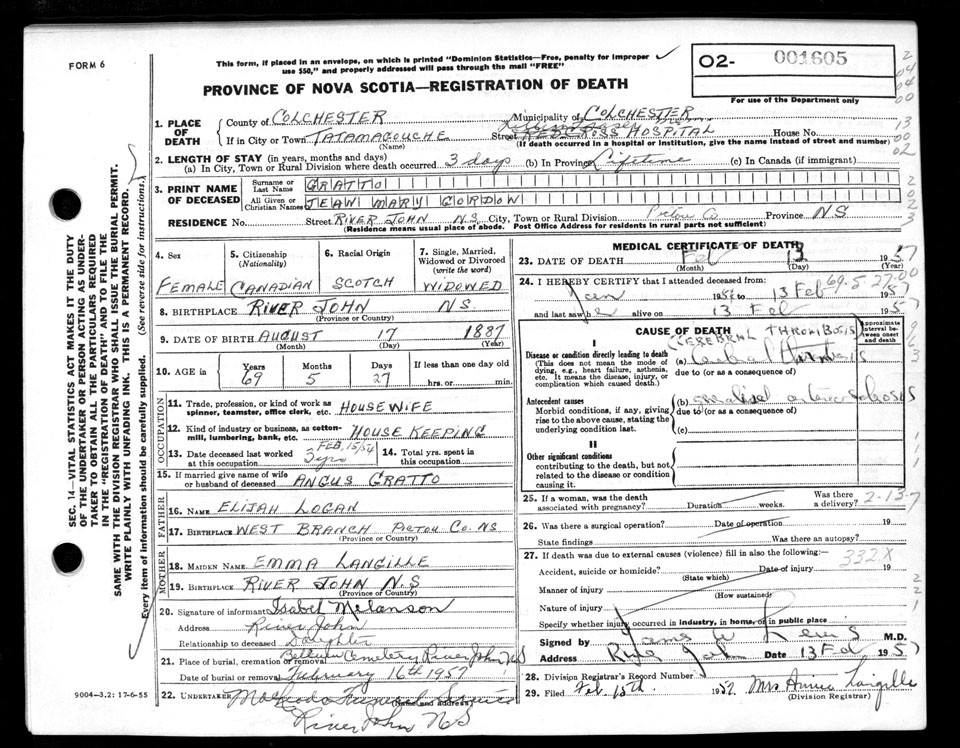 FORM 6
This form, if placed in an envelope, on which is printed "Dominion Statistics—Free, penalty for improper
use $50," and properly addressed will pass through the mail "FREE"
PROVINCE OF NOVA SCOTIA—REGISTRATION OF DEATH
O2- 001605
For use of the Department only
1. PLACE OF DEATH
County of COLCHESTER Municipality of COLCHESTER
If in City or Town TATAMAGOUCHE Street RED CROSS HOSPITAL House No.
(Name) (If death occurred in a hospital or institution, give the name instead of street and number)
2. LENGTH OF STAY (in years, months and days)
(a) In City, Town or Rural Division where death occurred 3 days (b) In Province Lifetime (c) In Canada (if immigrant)
3. PRINT NAME OF DECEASED
Surname or Last Name GRATTO
All Given or Christian Names JEAN MARY GORDON
RESIDENCE No. Street RIVER JOHN NS City, Town or Rural Division Pictou Co Province NS
(Residence means usual place of abode. Post Office Address for residents in rural parts not sufficient)
4. Sex
FEMALE
5. Citizenship (Nationality)
CANADIAN
6. Racial Origin
SCOTCH
7. Single, Married, Widowed or Divorced (write the word)
WIDOWED
8. BIRTHPLACE RIVER JOHN NS.
(Province or Country)
9. DATE OF BIRTH AUGUST 17 1887
(Month) (Day) (Year)
10. AGE in Years Months Days If less than one day
69 5 27 hrs. or min.
OCCUPATION
11. Trade, profession, or kind of work as spinner, teamster, office clerk, etc. HOUSEWIFE
12. Kind of industry or business, as cotton-mill, lumbering, bank, etc. HOUSE KEEPING
13. Date deceased last worked at this occupation FEB, 15/54 3 yrs
14. Total yrs. spent in this occupation
15. If married give name of wife or husband of deceased ANGUS GRATTO
FATHER
16. NAME ELIJAH LOGAN
17. BIRTHPLACE WEST BRANCH PICTOU CO. NS
(Province or Country)
MOTHER
18. MAIDEN NAME EMMA LANGILLE
19. BIRTHPLACE RIVER JOHN N.S
(Province or Country)
20. Signature of informant Isabel Melanson
Address River John
Relationship to deceased Daughter
21. Place of burial, cremation or removal Cemetery River John NS
Date of burial or removal February 16th 1957
22. UNDERTAKER
(Name and address)
River John NS
9004—3.2: 17-6-55
MEDICAL CERTIFICATE OF DEATH
23. DATE OF DEATH Feb 13 1957
(Month) (Day) (Year)
69.5.27.00
24. I HEREBY CERTIFY that I attended deceased from
Jan 195 to 13 Feb 1957
and last saw her alive on 13 Feb 1957
CAUSE OF DEATH
Approximate interval between onset and death
I
CEREBRAL THROMBOSIS
Disease or condition directly leading to death (a) Cerebral thrombosis
(This does not mean the mode of dying, e.g., heart failure, asthenia, etc. It means the disease, injury, or complication which caused death.)
due to (or as a consequence of)
Antecedent causes (b) generalised arteriosclerosis
Morbid conditions, if any, giving rise to the above cause, stating the underlying condition last.
due to (or as a consequence of)
(c)
II
Other significant conditions
contributing to the death, but not related to the disease or condition causing it.
25. If a woman, was the death associated with pregnancy? Duration weeks. Was there a delivery?
2-13-7
26. Was there a surgical operation? Date of operation 19
State findings Was there an autopsy?
27. If death was due to external causes (violence) fill in also the following:—
332X
Accident, suicide or homicide? Date of injury 19
(State which)
Manner of injury
(How sustained)
Nature of injury
Specify whether injury occurred in industry, in home, or in public place
Signed by James W M.D.
Address River John Date 13 Feb 1957
28. Division Registrar's Record Number
29. Filed Feb. 15th. 1957 Mrs Annie Langille
(Division Registrar)
SEC. 14—VITAL STATISTICS ACT MAKES IT THE DUTY
OF THE UNDERTAKER OR PERSON ACTING AS UNDER-
TAKER TO OBTAIN ALL THE PARTICULARS REQUIRED
IN THE "REGISTRATION OF DEATH" AND TO FILE THE
SAME WITH THE DIVISION REGISTRAR WHO SHALL ISSUE THE BURIAL PERMIT.
WRITE PLAINLY WITH UNFADING INK. THIS IS A PERMANENT RECORD.
Every item of information should be carefully supplied. (See reverse side for instructions.)